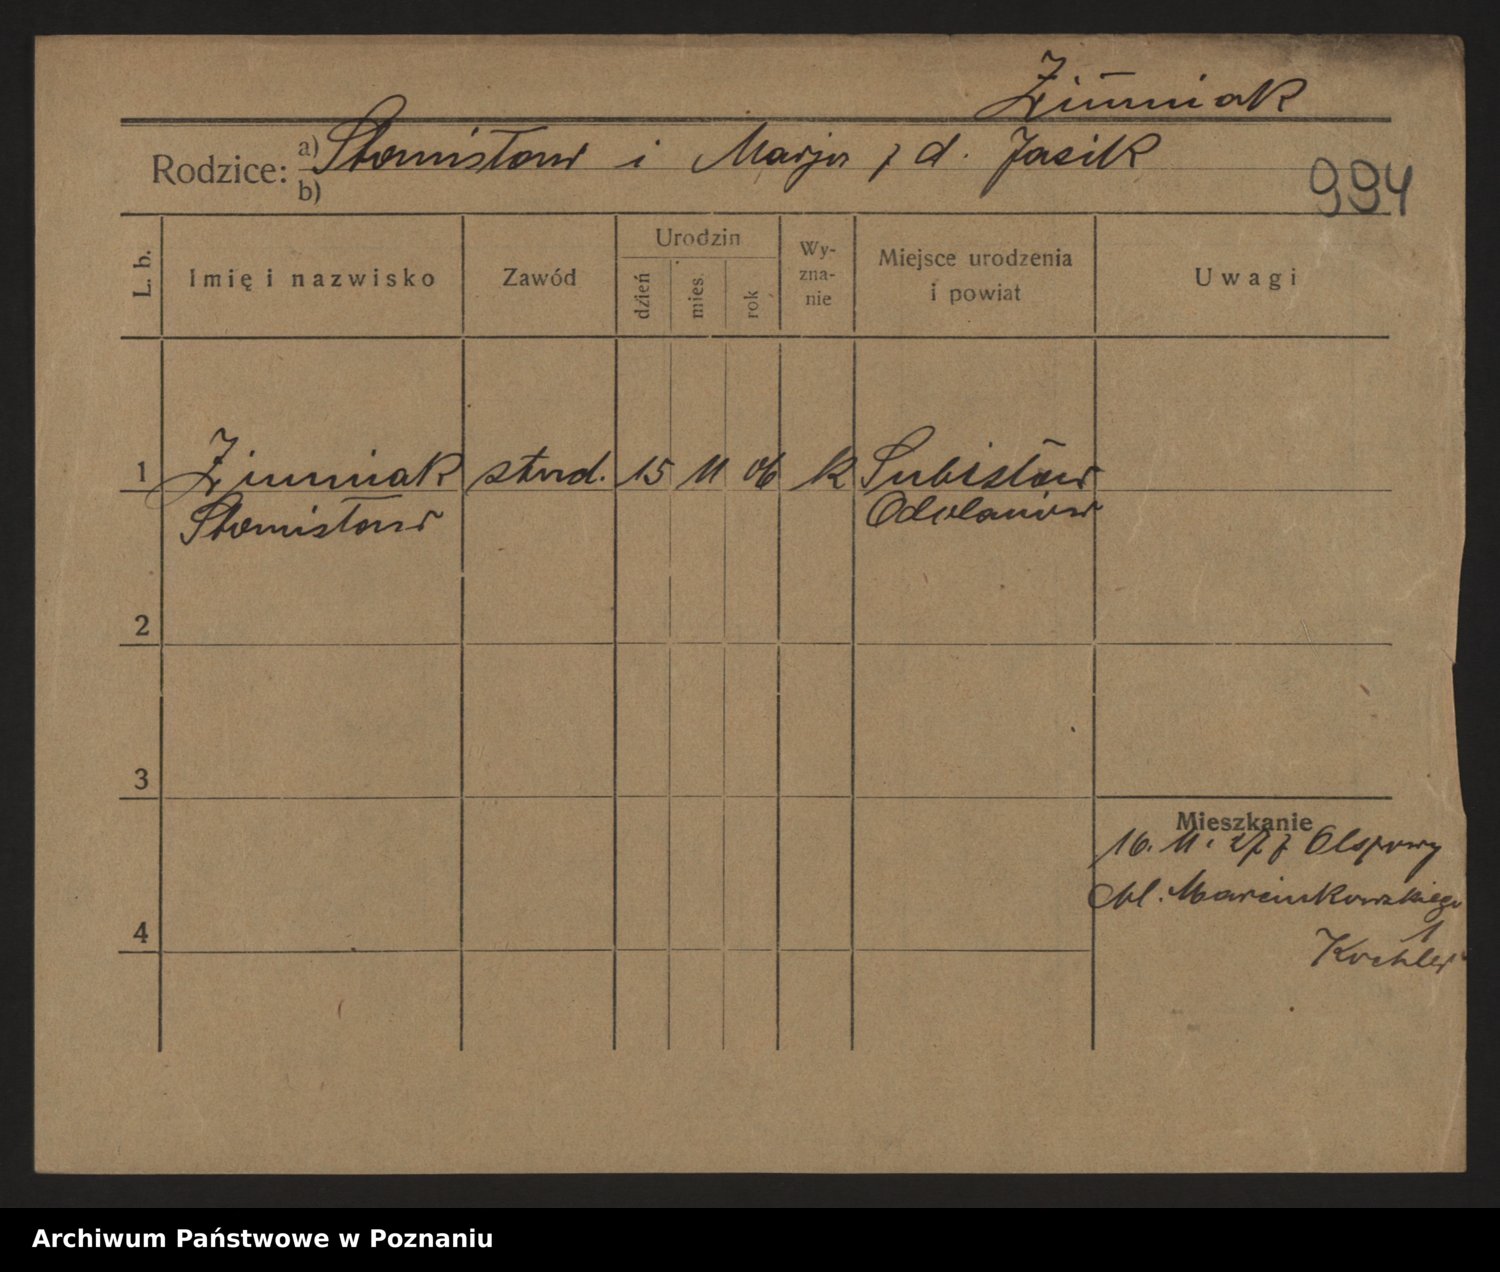 Zimniak
Rodzice: a) Stanisław i Marja z d. Jasik
b)
994
L. b.
Imię i nazwisko
Zawód
Urodzin
dzień
mies.
rok
Wy-
zna-
nie
Miejsce urodzenia
i powiat
Uwagi
1 Zimniak stud. 15 11 06 k Sulisław
Stanisław Odolanów
2
3
Mieszkanie
16. 11. 27 z
Al. Marcinkowskiego
1
4
Koehler
Archiwum Państwowe w Poznaniu